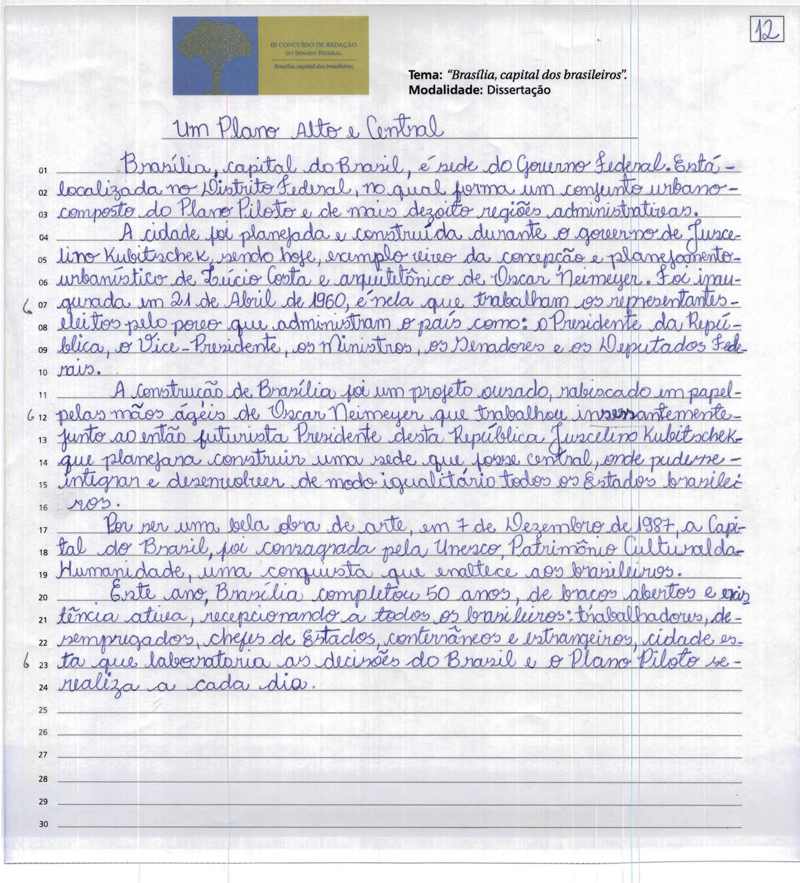 12
III CONCURSO DE REDAÇÃO
DO SENADO FEDERAL
Brasília, capital dos brasileiros
Tema: "Brasília, capital dos brasileiros".
Modalidade: Dissertação
Um Plano Alto e Central
01 Brasília, capital do Brasil, é sede do Governo Federal. Está-
02 localizada no Distrito Federal, no qual forma um conjunto urbano-
03 composto do Plano Piloto e de mais dezoito regiões administrativas.
04 A cidade foi planejada e construída durante o governo de Jusce-
05 lino Kubitschek, sendo hoje, exemplo vivo da concepção e planejamento-
06 urbanístico de Lúcio Costa e arquitetônico de Oscar Neimeyer. Foi inau-
6 07 gurada em 21 de Abril de 1960, é nela que trabalham os representantes-
08 eleitos pelo povo que administram o país como: o Presidente da Repú-
09 blica, o Vice-Presidente, os Ministros, os Senadores e os Deputados Fede-
10 rais.
11 A construção de Brasília foi um projeto ousado, rabiscado em papel-
6 12 pelas mãos ágeis de Oscar Neimeyer que trabalhou insessantemente-
13 junto ao então futurista Presidente desta República Juscelino Kubitschek-
14 que planejava construir uma sede que fosse central, onde pudesse-
15 integrar e desenvolver de modo igualitário todos os Estados brasilei
16 ros.
17 Por ser uma bela obra de arte, em 7 de Dezembro de 1987, a Capi-
18 tal do Brasil, foi consagrada pela Unesco, Patrimônio Cultural da-
19 Humanidade, uma conquista que enaltece aos brasileiros.
20 Este ano, Brasília completou 50 anos, de braços abertos e exis
21 tência ativa, recepcionando a todos os brasileiros: trabalhadores, de-
22 sempregados, chefes de Estados, conterrâneos e estrangeiros, cidade es-
6 23 ta que laboratoria as decisões do Brasil e o Plano Piloto se-
24 realiza a cada dia.
25
26
27
28
29
30